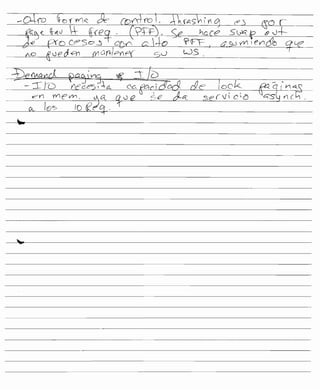 -Otro forma de control. thrashing es por
page fault freq. (PFF). Se hace swap out
de procesos con alto PFF, asumiendo que
no pueden mantener su WS.
Demand paging & I/O
-I/O necesita capacidad de lock páginas
en mem. ya que se da servicio asynch.
a los IO Req.